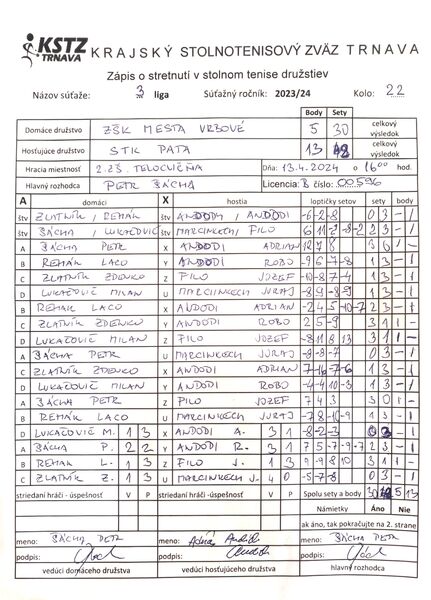 KSTZ TRNAVA KRAJSKÝ STOLNOTENISOVÝ ZVÄZ TRNAVA
Zápis o stretnutí v stolnom tenise družstiev
Názov súťaže: 3 liga Súťažný ročník: 2023/24 Kolo: 22
Body Sety
Domáce družstvo ZŠK MESTA VRBOVÉ 5 30 celkový výsledok
Hosťujúce družstvo STK PATA 13 celkový výsledok
Hracia miestnosť 2.ZŠ. TELOCVIČŇA Dňa: 13.4.2024 o 16 00 hod.
Hlavný rozhodca PETR BÁCHA Licencia: B číslo: 00596
A domáci X hostia loptičky setov sety body
štv ZLATNÍK / REMÁK štv ANDÓDI / ANDÓDI -6-2-8 0 3 - 1
štv BÁCHA / LUKAČOVIČ štv MARCINKECH / FILO 6 11-2-8-2 2 3 - 1
A BÁCHA PETR X ANDÓDI ADRIÁN 12 7 8 3 0 1 -
B REMÁK LACO Y ANDÓDI ROBO -9 6-7-8 1 3 - 1
C ZLATNÍK ZDENKO Z FILO JOZEF -10-8 7-4 1 3 - 1
D LUKAČOVIČ MILAN U MARCINKECH JURAJ -8-9 8-9 1 3 - 1
B REMÁK LACO X ANDÓDI ADRIAN -2 4 5-10-7 2 3 - 1
C ZLATNÍK ZDENKO Y ANDÓDI ROBO 3 1 1 -
D LUKAČOVIČ MILAN Z FILO JOZEF -8 11 8 13 3 1 1 -
A BÁCHA PETR U MARCINKECH JURAJ -8-8-7 0 3 - 1
C ZLATNÍK ZDENKO X ANDÓDI ADRIAN 7-16-7-6 1 3 - 1
D LUKAČOVIČ MILAN Y ANDÓDI ROBO -4-4 10-3 1 3 - 1
A BÁCHA PETR Z FILO JOZEF 7 4 3 3 0 1 -
B REMÁK LACO U MARCINKECH JURAJ -7 8-10-9 1 3 - 1
D LUKAČOVIČ M. 1 3 X ANDÓDI A. 3 1 -8-2-3 0 3 - 1
A BÁCHA P. 2 2 Y ANDÓDI R. 3 1 7 5-7-9-7 2 3 - 1
B REMÁK L. 1 3 Z FILO J. 1 3 9-9 8 10 3 1 1 -
C ZLATNÍK Z. 1 3 U MARCINKECH J. 4 0 -5-7-8 0 3 - 1
striedaní hráči - úspešnosť V P striedaní hráči - úspešnosť V P Spolu sety a body 30 5 13
Námietky Áno Nie
ak áno, tak pokračujte na 2. strane
meno: BÁCHA PETR meno: Adrián Andódi meno: BÁCHA PETR
podpis: podpis: podpis:
vedúci domáceho družstva vedúci hosťujúceho družstva hlavný rozhodca